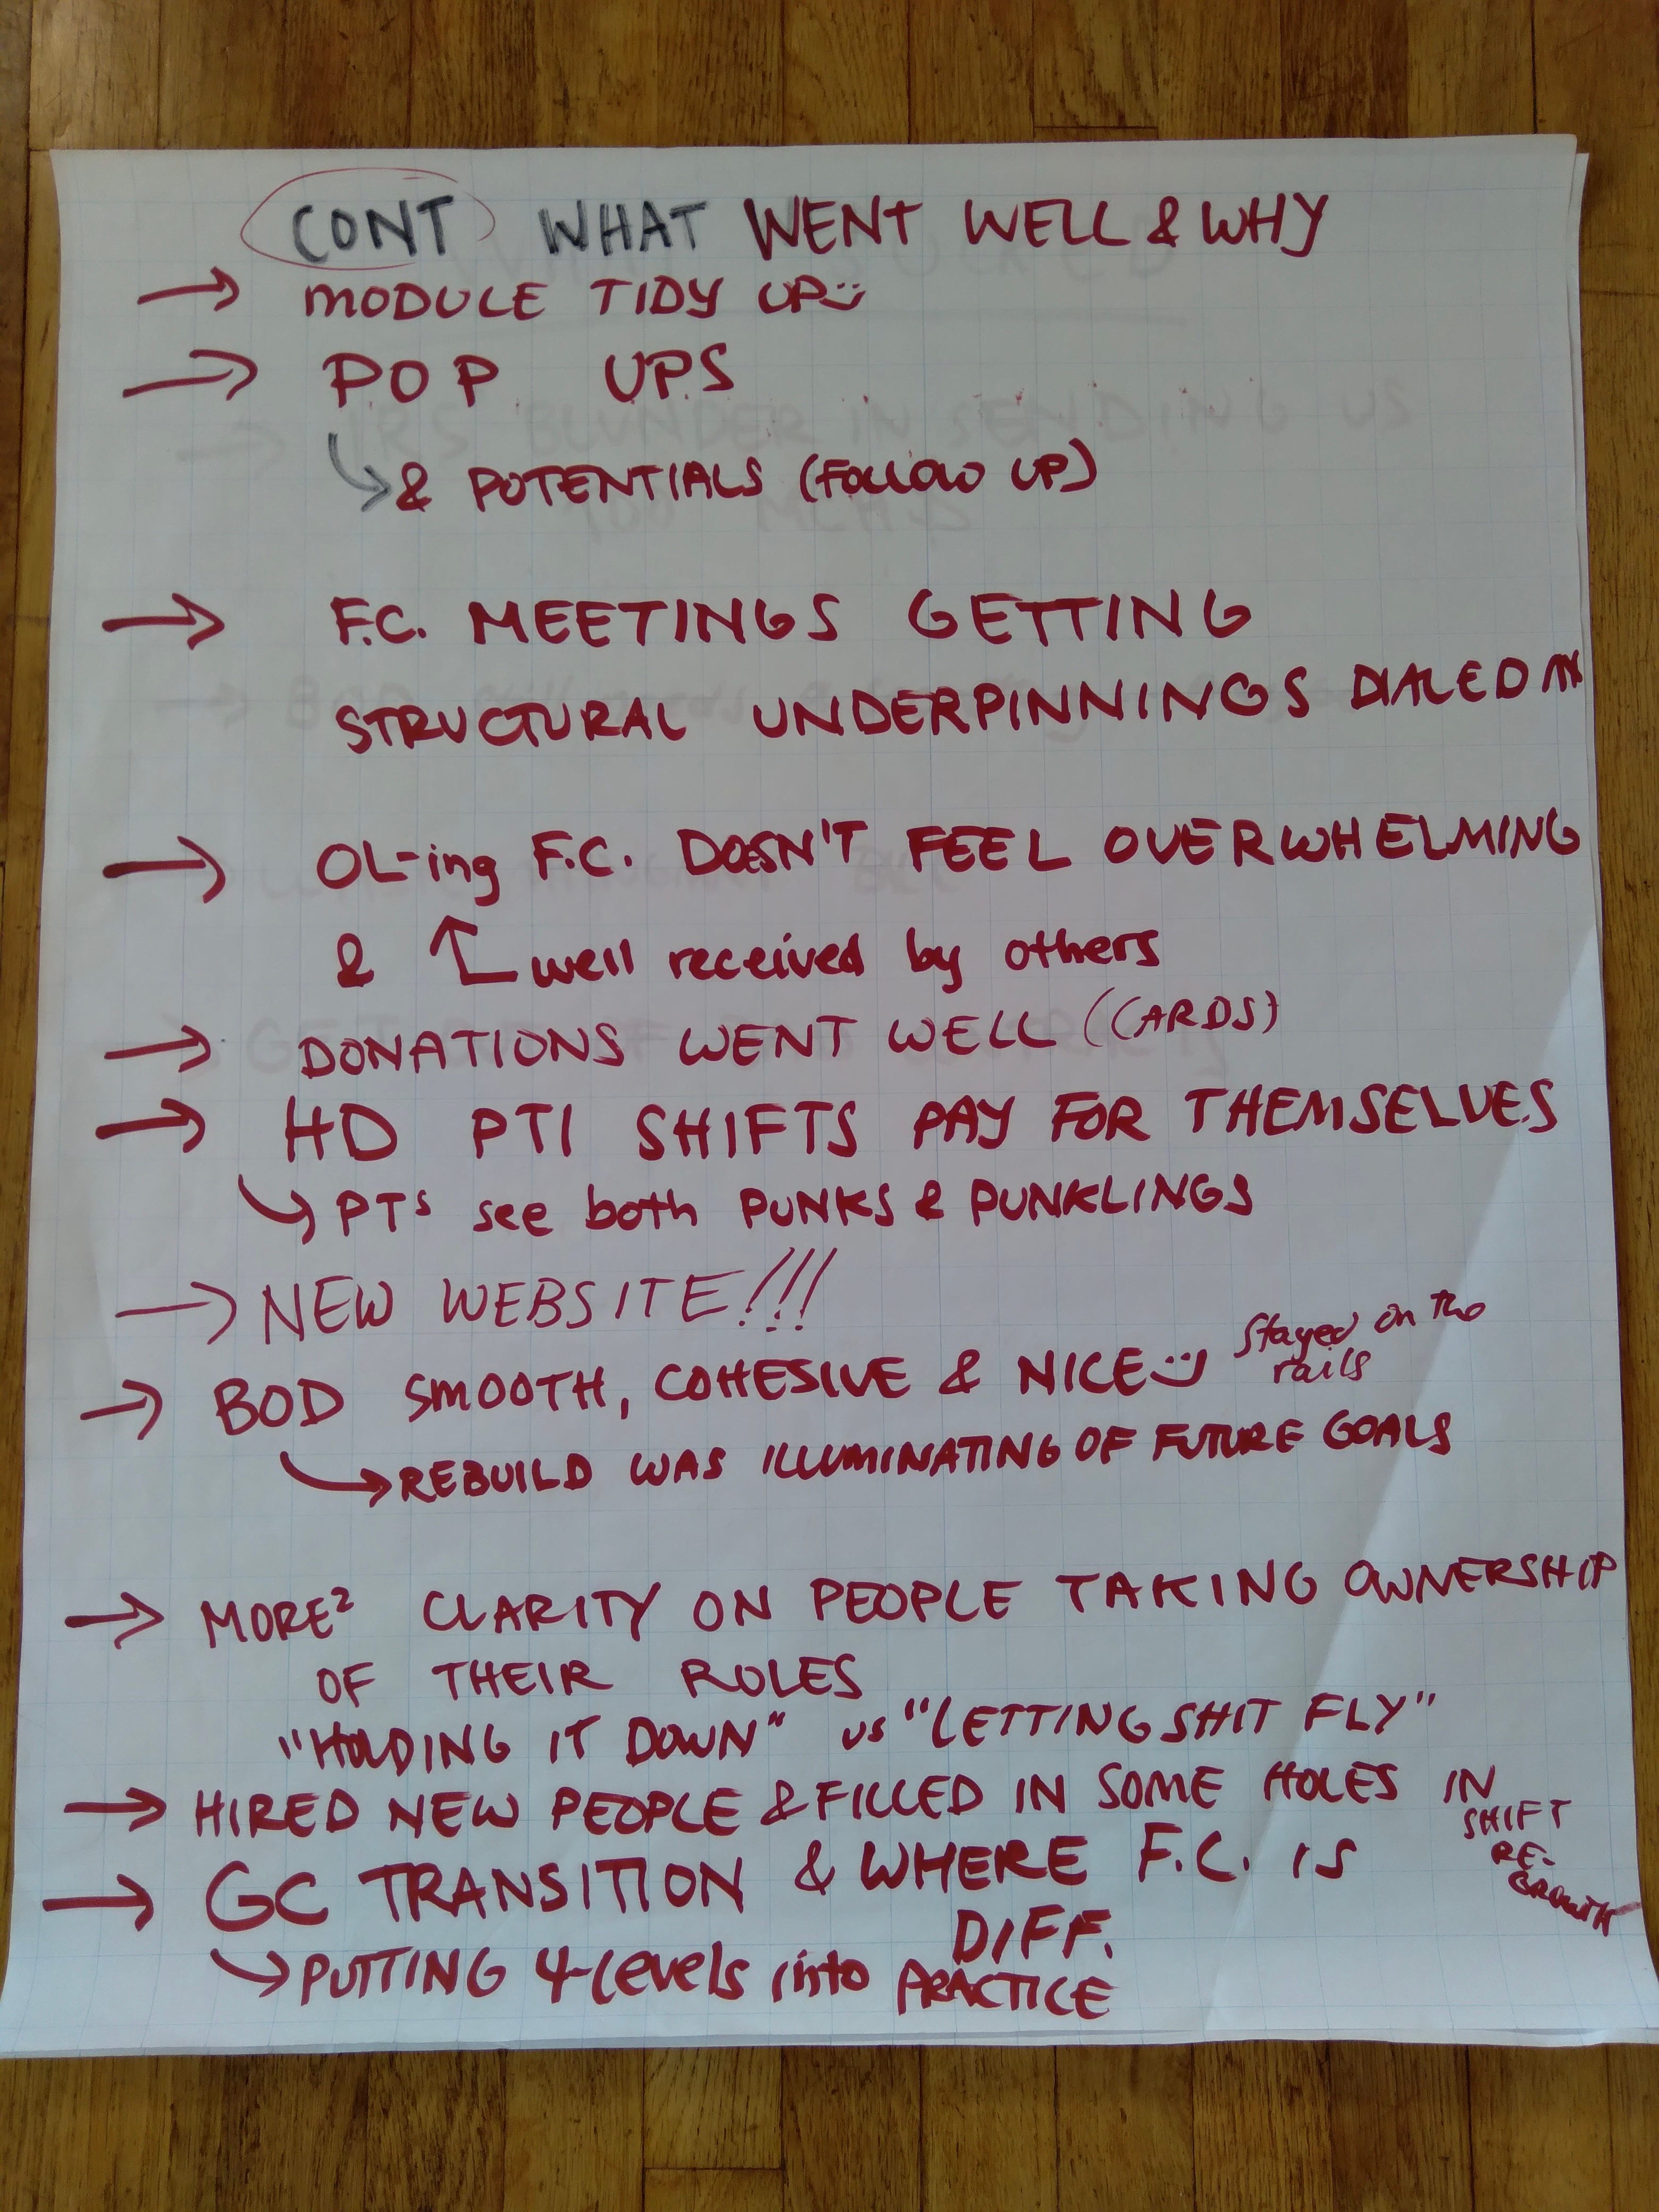 CONT WHAT WENT WELL & WHY
→ MODULE TIDY UP :)
→ POP UPS
↳ & POTENTIALS (FOLLOW UP)
→ F.C. MEETINGS GETTING
STRUCTURAL UNDERPINNINGS DIALED IN
→ OL-ing F.C. DOESN'T FEEL OVERWHELMING
& ↑ well received by others
→ DONATIONS WENT WELL (CARDS)
→ HD PTI SHIFTS PAY FOR THEMSELVES
↳ PTs see both PUNKS & PUNKLINGS
→ NEW WEBSITE!!!
→ BOD SMOOTH, COHESIVE & NICE :) Stayed on the
rails
↳ REBUILD WAS ILLUMINATING OF FUTURE GOALS
→ MORE² CLARITY ON PEOPLE TAKING OWNERSHIP
OF THEIR ROLES
"HOLDING IT DOWN" vs "LETTING SHIT FLY"
→ HIRED NEW PEOPLE & FILLED IN SOME HOLES IN
SHIFT
RE-
GROWTH
→ GC TRANSITION & WHERE F.C. IS
DIFF.
↳ PUTTING 4-levels into PRACTICE